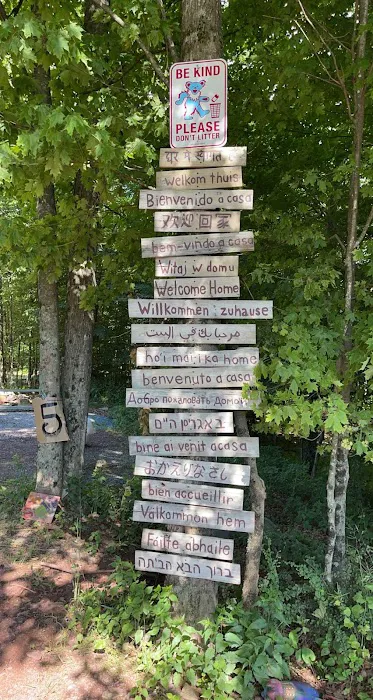 BE KIND
PLEASE
DON'T LITTER
welkom thuis
Bienvenido a casa
欢迎回家
bem-vindo a casa
Witaj w domu
Welcome Home
Willkommen zuhause
مرحبا بك في البيت
ho'i mai i ka home
benvenuto a casa
Добро пожаловать Домой
באגריסן היים
bine ai venit acasa
おかえりなさい
bien accueillir
Valkommon hem
Fáilte abhaile
ברוך הבא הביתה
5